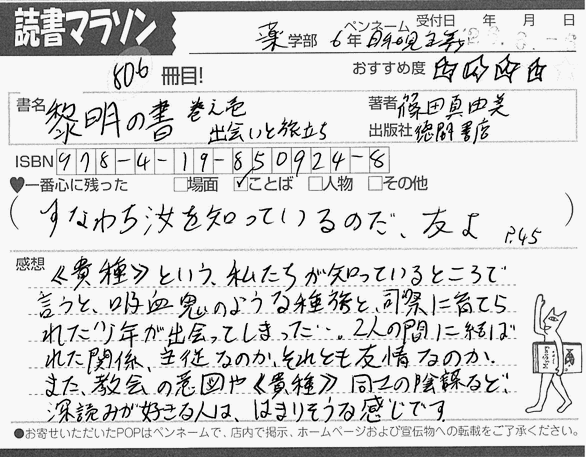 読書マラソン
薬学部 6年 ペンネーム 受付日 年 月 日
806冊目! おすすめ度 ☆☆☆☆☆
書名 黎明の書 巻之壱 出会いと旅立ち
著者 篠田真由美
出版社 徳間書店
ISBN 978-4-19-850924-8
♥一番心に残った □場面 ☑ことば □人物 □その他
(すなわち汝を知っているのだ、友よ P.45)
感想 《貴種》という、私たちが知っているところで
言うと、吸血鬼のような種族と、司祭に育てら
れた少年が出会ってしまった…。2人の間に結ば
れた関係、主従なのか、それとも友情なのか。
また、教会の意図や《貴種》同士の陰謀など、
深読みが好きな人は、はまりそうな感じです
●お寄せいただいたPOPはペンネームで、店内で掲示、ホームページおよび宣伝物への転載をご了承ください。